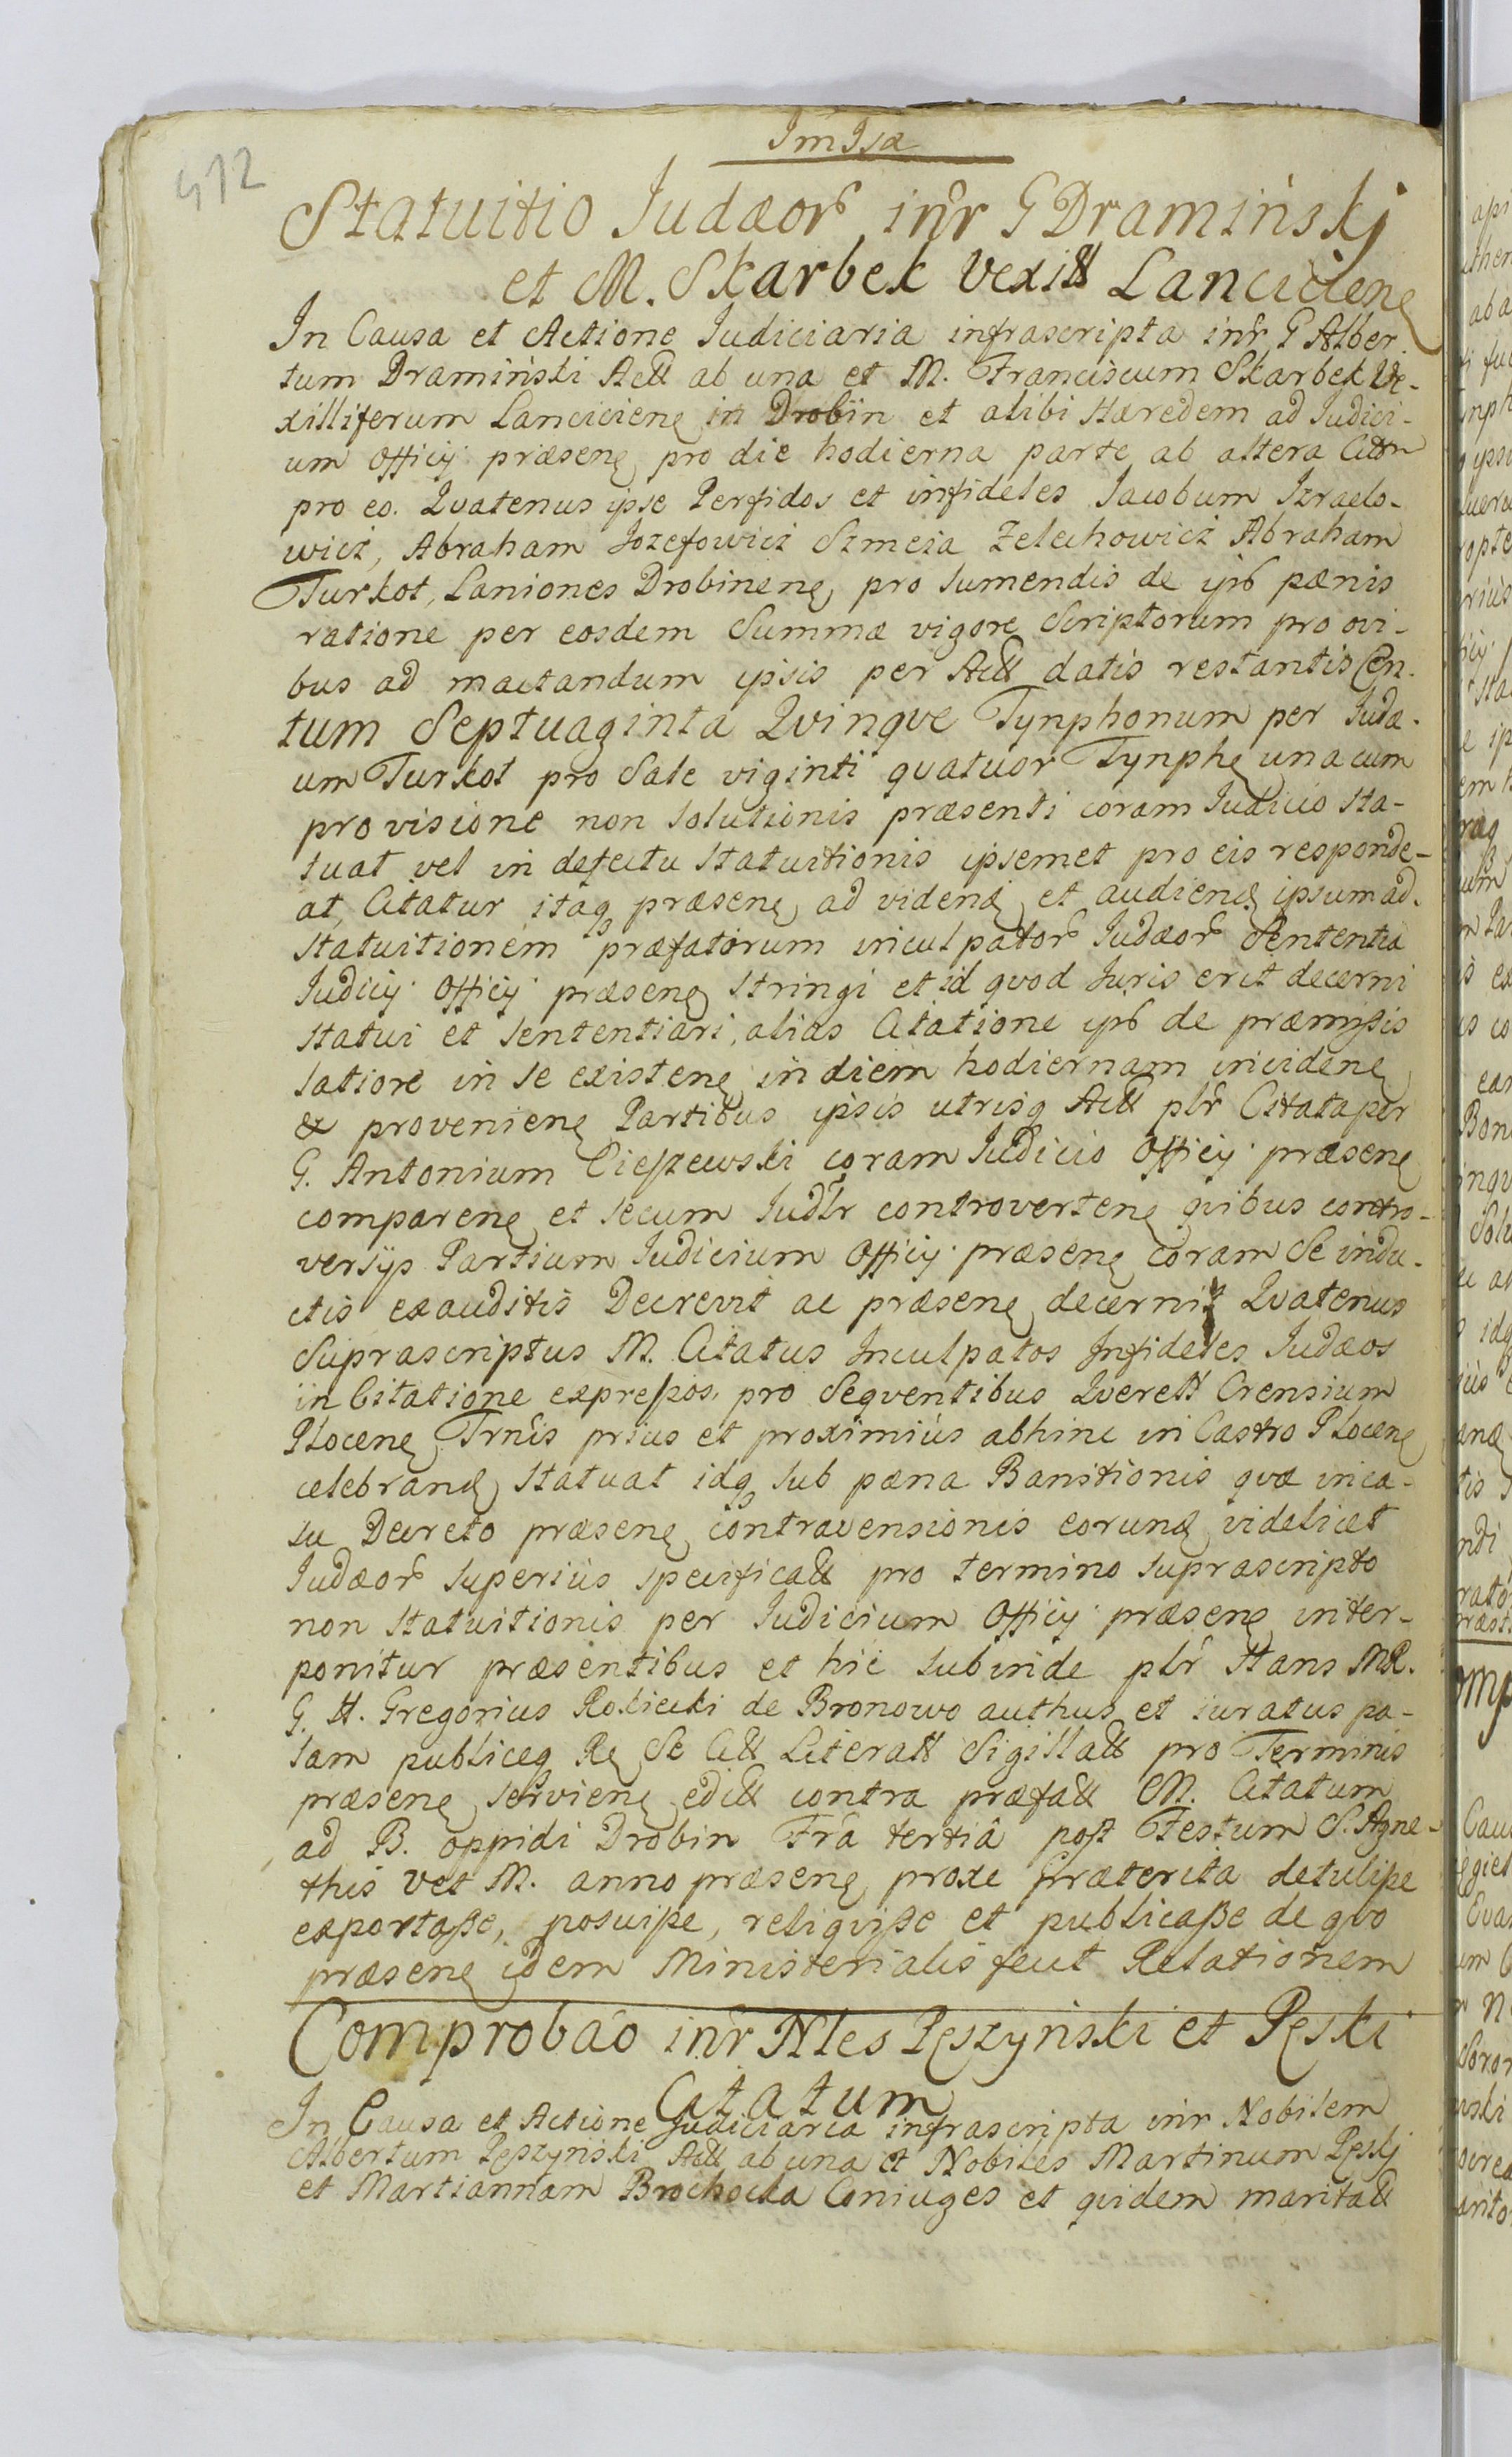 472
Im Isa
Statuitio Judæor inr G Dramiński
et M. Skarbek Vexill Lanciciene
In Causa et Actione Judiciaria infrascripta inr G Alber
tum Dramiński Act ab una et M. Franciscum Skarbek Ve-
xilliferum Lanciciene in Drobin et alibi Hæredem ad Judici-
um Officij præsene pro die hodierna parte ab altera Cittm
pro eo. Qvatenus ipse Perfidos et infideles Jacobum Izraelo-
wicz, Abraham Jozefowicz Szmeia Zelechowicz Abraham
Turkot, Laniones Drobinene, pro sumendis de ips pænis
ratione per eosdem Summæ vigore Scriptorum pro ovi-
bus ad mactandum ipsis per Act datis restantis Cen.
tum Septuaginta Qvinqve Tynphonum per Judæ.
um Turkot pro Sale viginti qvatuor Tynphe una cum
provisione non solutionis præsenti coram Judicio sta-
tuat vel in defectu statuitionis ipsemet pro eis responde-
at, Citatur itaq præsene, ad videnđ et audienđ ipsum ad.
statuitionem præfatorum inculpator Judæor Sententia
Judicij Officij præsene stringi et id qvod Juris erit decerni
statui et sententiari, alias Citatione ips de præmissis
latiore in se existene in diem hodiernam incidene
& proveniene Partibus ipsis utrisq Act plr Citata per
G. Antonium Cieszewski coram Judicio Officij præsene
comparene et secum Judlr controvertene qvibus contro-
versijs Partium Judicium Officij præsene coram Se indu-
ctis exauditis Decrevit ac præsene decernit Qvatenus
Suprascriptus M. Citatus Inculpatos Infideles Judæos
in Citatione expressos, pro Seqventibus Qverell Crensium
Plocene Trnis prius et proximiùs abhinc in Castro Plocene
celebranđ statuat idq sub pæna Banitionis qvæ in ca-
su Decreto præsene contravensionis eorunđ videlicet
Judæor superiùs specificatt pro termino suprascripto
non statuitionis per Judicium Officij præsene inter-
ponitur præsentibus et hic subinde plr Stans MR.
G. H. Gregorius Rościcki de Bronowo authus et iuratus pa-
lam publiceq Re Se Citt Literatt Sigillatt pro Terminis
præsene serviene editt contra præfatt M. Citatum
ad B. oppidi Drobin Fra tertia post Festum S. Agne-
this Vet M. anno præsene proxe præterita detulisse
exportasse, posuisse, reliqvisse et publicasse de qvo
præsene idem Ministerialis fecit Relationem
Comprobao inr Nles Pęszyński et Pęski
Citatum
In Causa et Actione Judiciaria infrascripta inr Nobilem
Albertum Pęszyński Act ab una et Nobiles Martinum Pęskj
et Martiannam Brochocka Coniuges et qvidem maritatt